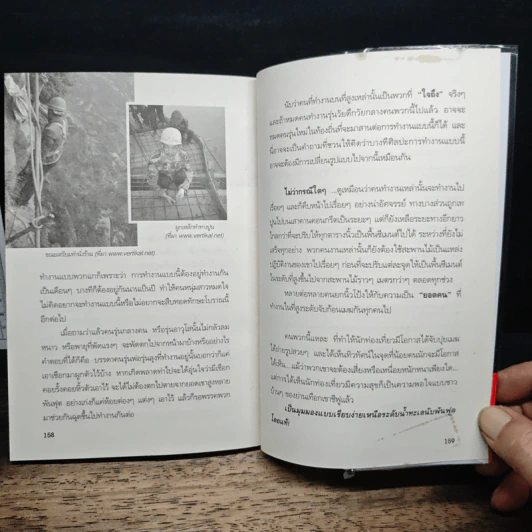 ลูกเหล็กทำทางปูน
(ที่มา www.vertikal.net)
ขณะเตรียมทำนั่งร้าน (ที่มา www.vertikal.net)
ทำงานแบบพวกเขาก็เพราะว่า การทำงานแบบนี้ต้องอยู่ทำงานกัน
เป็นเดือนๆ บางทีก็ต้องอยู่กันนานเป็นปี ทำให้คนหนุ่มสาวหมดใจ
ไม่คิดอยากจะทำงานแบบนี้หรือไม่อยากจะสืบทอดทักษะโบราณนี้
อีกต่อไป
เมื่อถามว่าแล้วคนรุ่นกลางคน หรือรุ่นอาวุโสนั้นไม่กลัวลม
หนาว หรือพายุที่พัดแรงๆ จะพัดตกไปจากหน้าผาบ้างหรืออย่างไร
คำตอบที่ได้ก็คือ บรรดาคนรุ่นพ่อรุ่นลุงที่ทำงานอยู่นั้นบอกว่าก็แค่
เอาเชือกมาผูกตัวไว้บ้าง หากเกิดพลาดท่าไปจะได้อุ่นใจว่ามีเชือก
คอยรั้งคอยหิ้วตัวเอาไว้ จะได้ไม่ต้องตกไปตายจากยอดเขาสูงหลาย
พันฟุต อย่างเก่งก็แค่ห้อยต่องๆ แต่งๆ เอาไว้ แล้วก็รอพรรคพวก
มาช่วยกันฉุดขึ้นไปทำงานกันต่อ
158
นับว่าคนที่ทำงานบนที่สูงเหล่านั้นเป็นพวกที่ “ใจถึง” จริงๆ
และถ้าหมดคนทำงานรุ่นวัยดึกวัยกลางคนพวกนี้ไปแล้ว อาจจะ
หมดคนรุ่นใหม่ในท้องถิ่นที่จะมาสานต่อการทำงานแบบนี้ก็ได้ และ
นี่อาจจะเป็นคำถามที่ชวนให้คิดว่าบางทีศิลปะการทำงานแบบนี้
อาจจะต้องมีการเปลี่ยนรูปแบบไปจากนี้เหมือนกัน
ไม่ว่ากรณีใดๆ ...ดูเหมือนว่าคนทำงานเหล่านั้นจะทำงานไป
เรื่อยๆ และก็คืบหน้าไปเรื่อยๆ อย่างน่าอัศจรรย์ ทางบางส่วนถูกเท
ปูนไปบนเสาตานคอนกรีตเป็นระยะๆ แต่ก็ยังเหลือระยะทางอีกยาว
ไกลกว่าที่จะปรับให้ทุกตารางนิ้วเป็นพื้นซีเมนต์ไปได้ ระหว่างที่ยังไม่
เสร็จทุกอย่าง พวกคนงานเหล่านั้นก็ยังต้องใช้สะพานไม้เป็นแหล่ง
ปฏิบัติงานของเขาไปเรื่อยๆ ก่อนที่จะปรับแต่ละจุดให้เป็นพื้นซีเมนต์
ในระดับที่สูงขึ้นไปจากสะพานไม้ราวๆ เมตรกว่าๆ ตลอดทุกช่วง
หลายต่อหลายคนยกนิ้วโป้งให้กับความเป็น “ยอดคน” ที่
ทำงานในที่สูงระดับจับก้อนเมฆกันทุกคนไป
คนพวกนี้แหละ ที่ทำให้นักท่องเที่ยวมีโอกาสได้จับปุยเมฆ
ได้ถ่ายรูปสวยๆ และได้เห็นทิวทัศน์ในจุดที่น้อยคนนักจะมีโอกาส
ได้เห็น...แม้ว่าพวกเขาจะต้องเสี่ยงหรือเหนื่อยหนักหนาเพียงใด...
แต่การได้เห็นนักท่องเที่ยวมีความสุขก็เป็นความพอใจแบบชาว
บ้านๆ ของย่านเทือกเขาชีฟูแล้ว
เป็นมุมมองแบบเรียบง่ายเหนือระดับน้ำทะเลนับพันฟุต
โดยแท้!
159